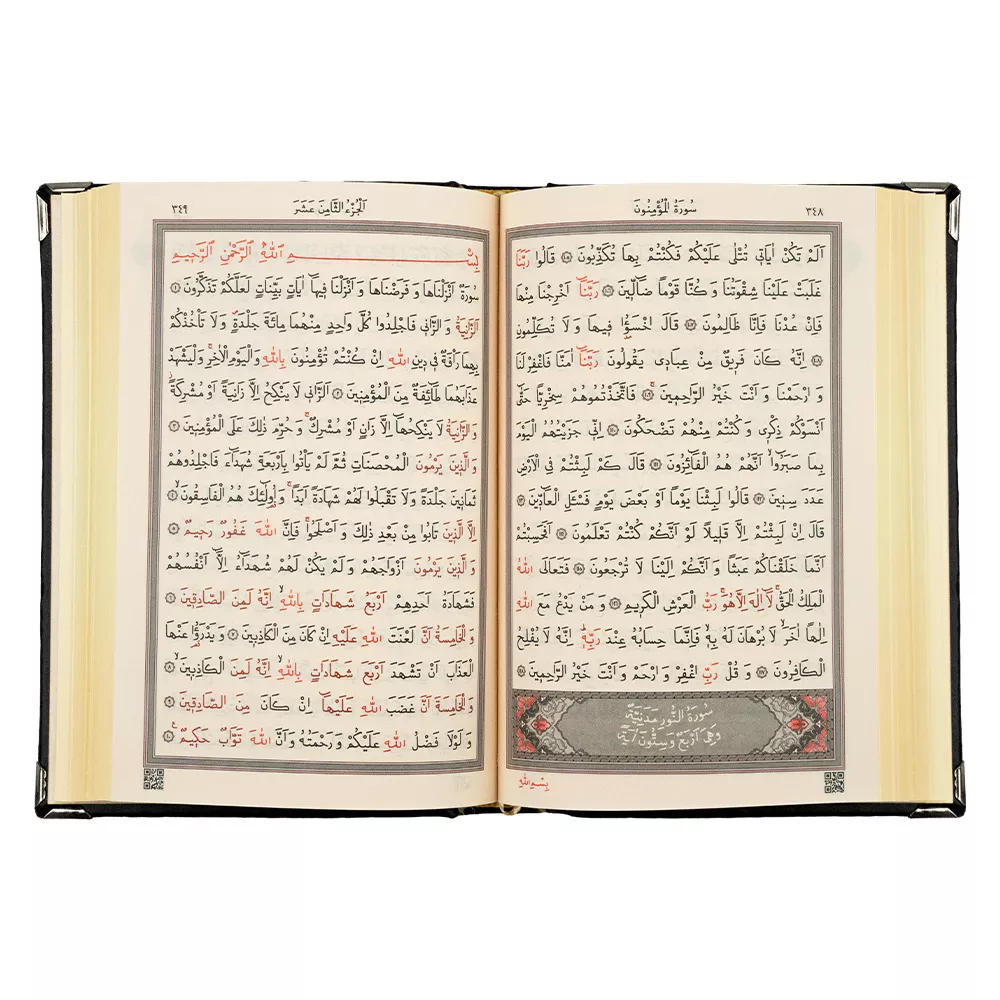 ٣٤٨
سُورَةُ الْمُؤْمِنُونَ
اَلَمْ تَكُنْ اٰيَاتٖى تُتْلٰى عَلَيْكُمْ فَكُنْتُمْ بِهَا تُكَذِّبُونَ ﴿١٠٥﴾ قَالُوا رَبَّنَا
غَلَبَتْ عَلَيْنَا شِقْوَتُنَا وَكُنَّا قَوْمًا ضَٓالّٖينَ ﴿١٠٦﴾ رَبَّنَٓا اَخْرِجْنَا مِنْهَا
فَاِنْ عُدْنَا فَاِنَّا ظَالِمُونَ ﴿١٠٧﴾ قَالَ اخْسَؤُ۫ا فٖيهَا وَلَا تُكَلِّمُونِ
﴿١٠٨﴾ اِنَّهُ كَانَ فَرٖيقٌ مِنْ عِبَادٖى يَقُولُونَ رَبَّنَٓا اٰمَنَّا فَاغْفِرْ لَنَا
وَارْحَمْنَا وَاَنْتَ خَيْرُ الرَّاحِمٖينَ ﴿١٠٩﴾ فَاتَّخَذْتُمُوهُمْ سِخْرِيًّا حَتّٰٓى
اَنْسَوْكُمْ ذِكْرٖى وَكُنْتُمْ مِنْهُمْ تَضْحَكُونَ ﴿١١٠﴾ اِنّٖى جَزَيْتُهُمُ الْيَوْمَ
بِمَا صَبَرُٓوا اَنَّهُمْ هُمُ الْفَٓائِزُونَ ﴿١١١﴾ قَالَ كَمْ لَبِثْتُمْ فِى الْاَرْضِ
عَدَدَ سِنٖينَ ﴿١١٢﴾ قَالُوا لَبِثْنَا يَوْمًا اَوْ بَعْضَ يَوْمٍ فَسْـَٔلِ الْعَٓادّٖينَ ﴿١١٣﴾
قَالَ اِنْ لَبِثْتُمْ اِلَّا قَلٖيلًا لَوْ اَنَّكُمْ كُنْتُمْ تَعْلَمُونَ ﴿١١٤﴾ اَفَحَسِبْتُمْ
اَنَّمَا خَلَقْنَاكُمْ عَبَثًا وَاَنَّكُمْ اِلَيْنَا لَا تُرْجَعُونَ ﴿١١٥﴾ فَتَعَالَى اللّٰهُ
الْمَلِكُ الْحَقُّۚ لَٓا اِلٰهَ اِلَّا هُوَۚ رَبُّ الْعَرْشِ الْكَرٖيمِ ﴿١١٦﴾ وَمَنْ يَدْعُ مَعَ اللّٰهِ
اِلٰهًا اٰخَرَۙ لَا بُرْهَانَ لَهُ بِهٖۙ فَاِنَّمَا حِسَابُهُ عِنْدَ رَبِّهٖؕ اِنَّهُ لَا يُفْلِحُ
الْكَافِرُونَ ﴿١١٧﴾ وَقُلْ رَبِّ اغْفِرْ وَارْحَمْ وَاَنْتَ خَيْرُ الرَّاحِمٖينَ ﴿١١٨﴾
سُورَةُ النُّورِ مَدَنِيَّةٌ
وَهِىَ اَرْبَعٌ وَسِتُّونَ اٰيَةً
بِسْمِ اللّٰهِ
اَلْجُزْءُ الثَّامِنَ عَشَرَ
٣٤٩
بِسْمِ اللّٰهِ الرَّحْمٰنِ الرَّحٖيمِ
سُورَةٌ اَنْزَلْنَاهَا وَفَرَضْنَاهَا وَاَنْزَلْنَا فٖيهَٓا اٰيَاتٍ بَيِّنَاتٍ لَعَلَّكُمْ تَذَكَّرُونَ ﴿١﴾
اَلزَّانِيَةُ وَالزَّانٖى فَاجْلِدُوا كُلَّ وَاحِدٍ مِنْهُمَا مِائَةَ جَلْدَةٍۖ وَلَا تَأْخُذْكُمْ
بِهِمَا رَأْفَةٌ فٖى دٖينِ اللّٰهِ اِنْ كُنْتُمْ تُؤْمِنُونَ بِاللّٰهِ وَالْيَوْمِ الْاٰخِرِۚ وَلْيَشْهَدْ
عَذَابَهُمَا طَٓائِفَةٌ مِنَ الْمُؤْمِنٖينَ ﴿٢﴾ اَلزَّانٖى لَا يَنْكِحُ اِلَّا زَانِيَةً اَوْ مُشْرِكَةًؗ
وَالزَّانِيَةُ لَا يَنْكِحُهَٓا اِلَّا زَانٍ اَوْ مُشْرِكٌۚ وَحُرِّمَ ذٰلِكَ عَلَى الْمُؤْمِنٖينَ ﴿٣﴾
وَالَّذٖينَ يَرْمُونَ الْمُحْصَنَاتِ ثُمَّ لَمْ يَأْتُوا بِاَرْبَعَةِ شُهَدَٓاءَ فَاجْلِدُوهُمْ
ثَمَانٖينَ جَلْدَةً وَلَا تَقْبَلُوا لَهُمْ شَهَادَةً اَبَدًاۚ وَاُو۬لٰٓئِكَ هُمُ الْفَاسِقُونَ ﴿٤﴾
اِلَّا الَّذٖينَ تَابُوا مِنْ بَعْدِ ذٰلِكَ وَاَصْلَحُواۚ فَاِنَّ اللّٰهَ غَفُورٌ رَحٖيمٌ ﴿٥﴾
وَالَّذٖينَ يَرْمُونَ اَزْوَاجَهُمْ وَلَمْ يَكُنْ لَهُمْ شُهَدَٓاءُ اِلَّٓا اَنْفُسُهُمْ
فَشَهَادَةُ اَحَدِهِمْ اَرْبَعُ شَهَادَاتٍ بِاللّٰهِۙ اِنَّهُ لَمِنَ الصَّادِقٖينَ ﴿٦﴾
وَالْخَامِسَةُ اَنَّ لَعْنَتَ اللّٰهِ عَلَيْهِ اِنْ كَانَ مِنَ الْكَاذِبٖينَ ﴿٧﴾ وَيَدْرَؤُ۬ا عَنْهَا
الْعَذَابَ اَنْ تَشْهَدَ اَرْبَعَ شَهَادَاتٍ بِاللّٰهِۙ اِنَّهُ لَمِنَ الْكَاذِبٖينَۙ ﴿٨﴾
وَالْخَامِسَةَ اَنَّ غَضَبَ اللّٰهِ عَلَيْهَٓا اِنْ كَانَ مِنَ الصَّادِقٖينَ ﴿٩﴾
وَلَوْلَا فَضْلُ اللّٰهِ عَلَيْكُمْ وَرَحْمَتُهُ وَاَنَّ اللّٰهَ تَوَّابٌ حَكٖيمٌ۟ ﴿١٠﴾